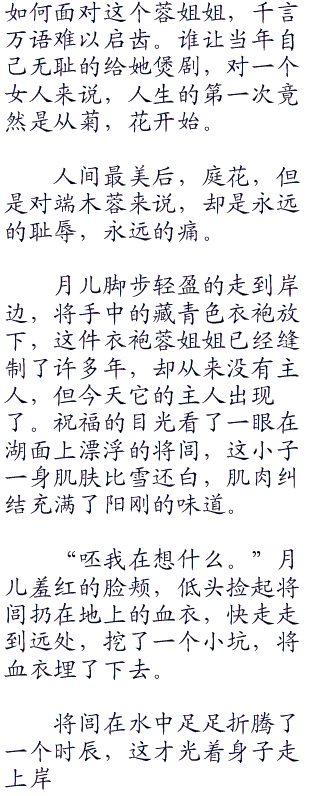 如何面对这个蓉姐姐，千言
万语难以启齿。谁让当年自
己无耻的给她煲剧，对一个
女人来说，人生的第一次竟
然是从菊，花开始。
人间最美后，庭花，但
是对端木蓉来说，却是永远
的耻辱，永远的痛。
月儿脚步轻盈的走到岸
边，将手中的藏青色衣袍放
下，这件衣袍蓉姐姐已经缝
制了许多年，却从来没有主
人，但今天它的主人出现
了。祝福的目光看了一眼在
湖面上漂浮的将闾，这小子
一身肌肤比雪还白，肌肉纠
结充满了阳刚的味道。
“呸我在想什么。”月
儿羞红的脸颊，低头捡起将
闾扔在地上的血衣，快走走
到远处，挖了一个小坑，将
血衣埋了下去。
将闾在水中足足折腾了
一个时辰，这才光着身子走
上岸